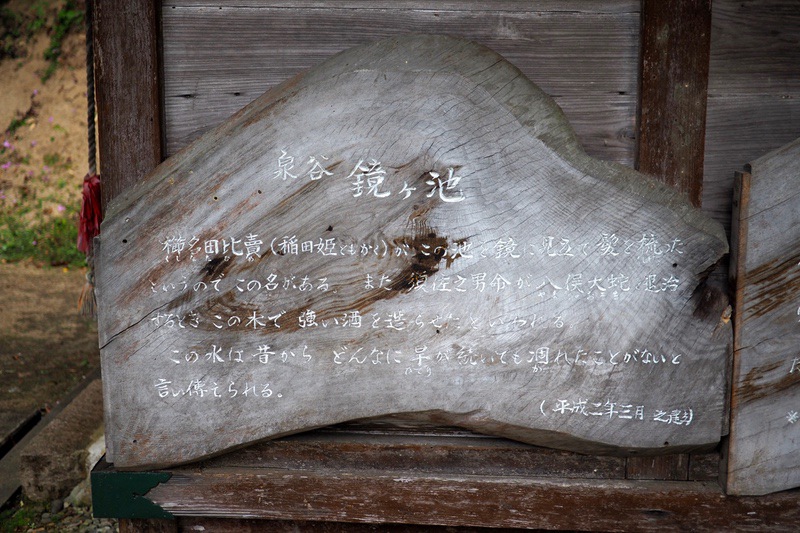 泉谷 鏡ヶ池
櫛名田比賣(稲田姫ともかく)がこの池を鏡に見立て髪を梳った
というのでこの名がある。また須佐之男命が八俣大蛇を退治
するときこの水で強い酒を造らせたといわれる
この水は昔からどんなに旱が続いても涸れたことがないと
言い傳えられる。
(平成二年三月